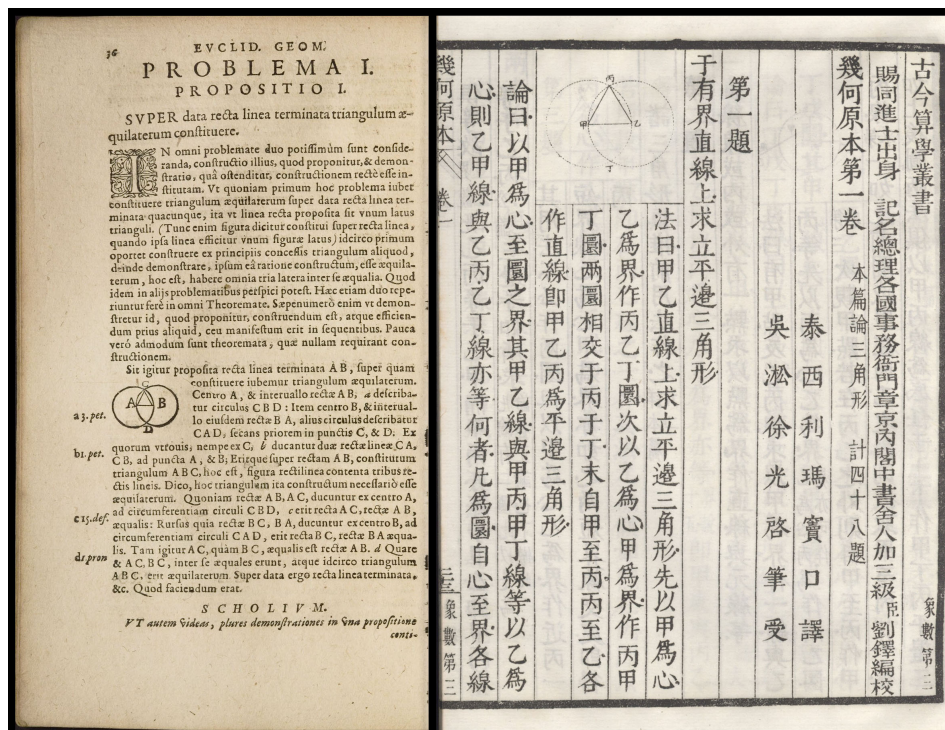 36
EVCLID. GEOM.
PROBLEMA I.
PROPOSITIO I.
SVPER data recta linea terminata triangulum æ-
quilaterum constituere.
IN omni problemate duo potissimùm sunt conside-
randa, constructio illius, quod proponitur, & demon-
stratio, quâ ostenditur, constructionem rectè esse in-
stitutam. Vt quoniam primum hoc problema iubet
constituere triangulum æquilaterum super data recta linea ter-
minata quacunque, ita vt linea recta proposita sit vnum latus
trianguli. (Tunc enim figura dicitur constitui super recta linea,
quando ipsa linea efficitur vnum figuræ latus) idcirco primum
oportet construere ex principiis concessis triangulum aliquod,
deinde demonstrare, ipsum eâ ratione constructum, esse æquila-
terum, hoc est, habere omnia tria latera inter se æqualia. Quod
idem in alijs problematibus perspici potest. Hæc etiam duo repe-
riuntur ferè in omni Theoremate. Sæpenumerò enim vt demon-
stretur id, quod proponitur, construendum est, atque efficien-
dum prius aliquid, ceu manifestum erit in sequentibus. Pauca
verò admodum sunt theoremata, quæ nullam requirant con-
structionem.
Sit igitur proposita recta linea terminata A B, super quam
constituere iubemur triangulum æquilaterum.
Centro A, & interuallo rectæ A B, a describa-
tur circulus C B D : Item centro B, & interual-
lo eiusdem rectæ B A, alius circulus describatur
C A D, secans priorem in punctis C, & D. Ex
quorum vtrouis, nempe ex C, b ducantur duæ rectæ lineæ C A,
C B, ad puncta A, & B; Eritque super rectam A B, constitutum
triangulum A B C, hoc est, figura rectilinea contenta tribus re-
ctis lineis. Dico, hoc triangulum ita constructum necessariò esse
æquilaterum. Quoniam rectæ A B, A C, ducuntur ex centro A,
ad circumferentiam circuli C B D, c erit recta A C, rectæ A B,
æqualis: Rursus quia rectæ B C, B A, ducuntur ex centro B, ad
circumferentiam circuli C A D, erit recta B C, rectæ B A æqua-
lis. Tam igitur A C, quàm B C, æqualis est rectæ A B. d Quare
& A C, B C, inter se æquales erunt, atque idcirco triangulum
A B C, erit æquilaterum. Super data ergo recta linea terminata,
&c. Quod faciendum erat.
C
A
B
D
a 3. pet.
b 1. pet.
c 15. def.
d 1. pron
SCHOLIVM.
VT autem videas, plures demonstrationes in vna propositione
conti-
古今算學叢書
象數第三
賜同進士出身 記名總理各國事務衙門章京內閣中書舍人加三級臣劉鐸編校
幾何原本第一卷 本篇論三角形 計四十八題
泰西利瑪竇口譯
吳淞徐光啓筆受
第一題
于有界直線上求立平邊三角形
丙
甲
乙
丁
法曰甲乙直線上求立平邊三角形先以甲爲心
乙爲界作丙乙丁圜次以乙爲心甲爲界作丙甲
丁圜兩圜相交于丙于丁末自甲至丙丙至乙各
作直線卽甲乙丙爲平邊三角形
論曰以甲爲心至圜之界其甲乙線與甲丙甲丁線等以乙爲
心則乙甲線與乙丙乙丁線亦等何者凡爲圜自心至界各線
幾何原本 卷一
象數第三